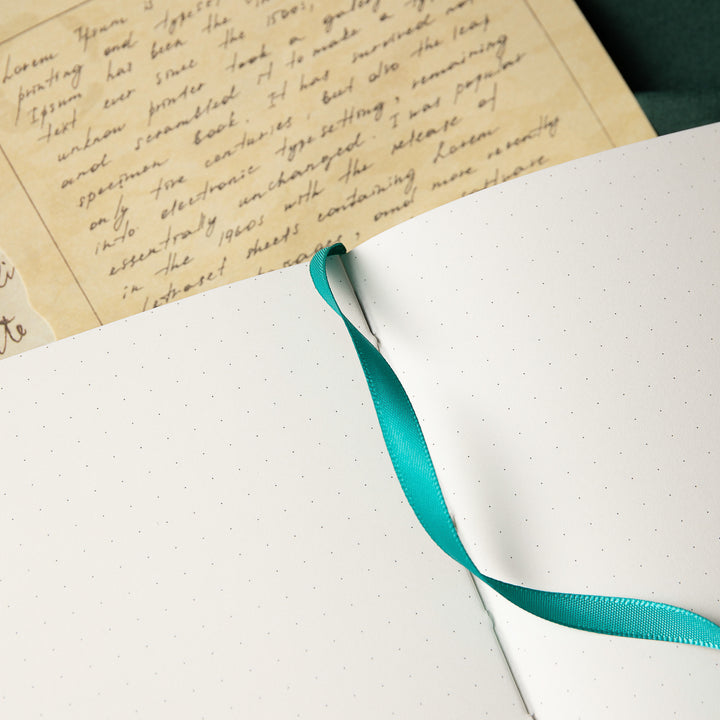 Lorem Ipsum is
printing and typese
Ipsum has been the
text ever since the 1500s,
unknow printer took a galley
and scrambled it to make a ty
specimen book. It has survived not
only five centuries, but also the leap
into electronic typesetting, remaining
essentially unchanged. I was popular
in the 1960s with the release of
letraset sheets containing Lorem
and more recently
software
li
te